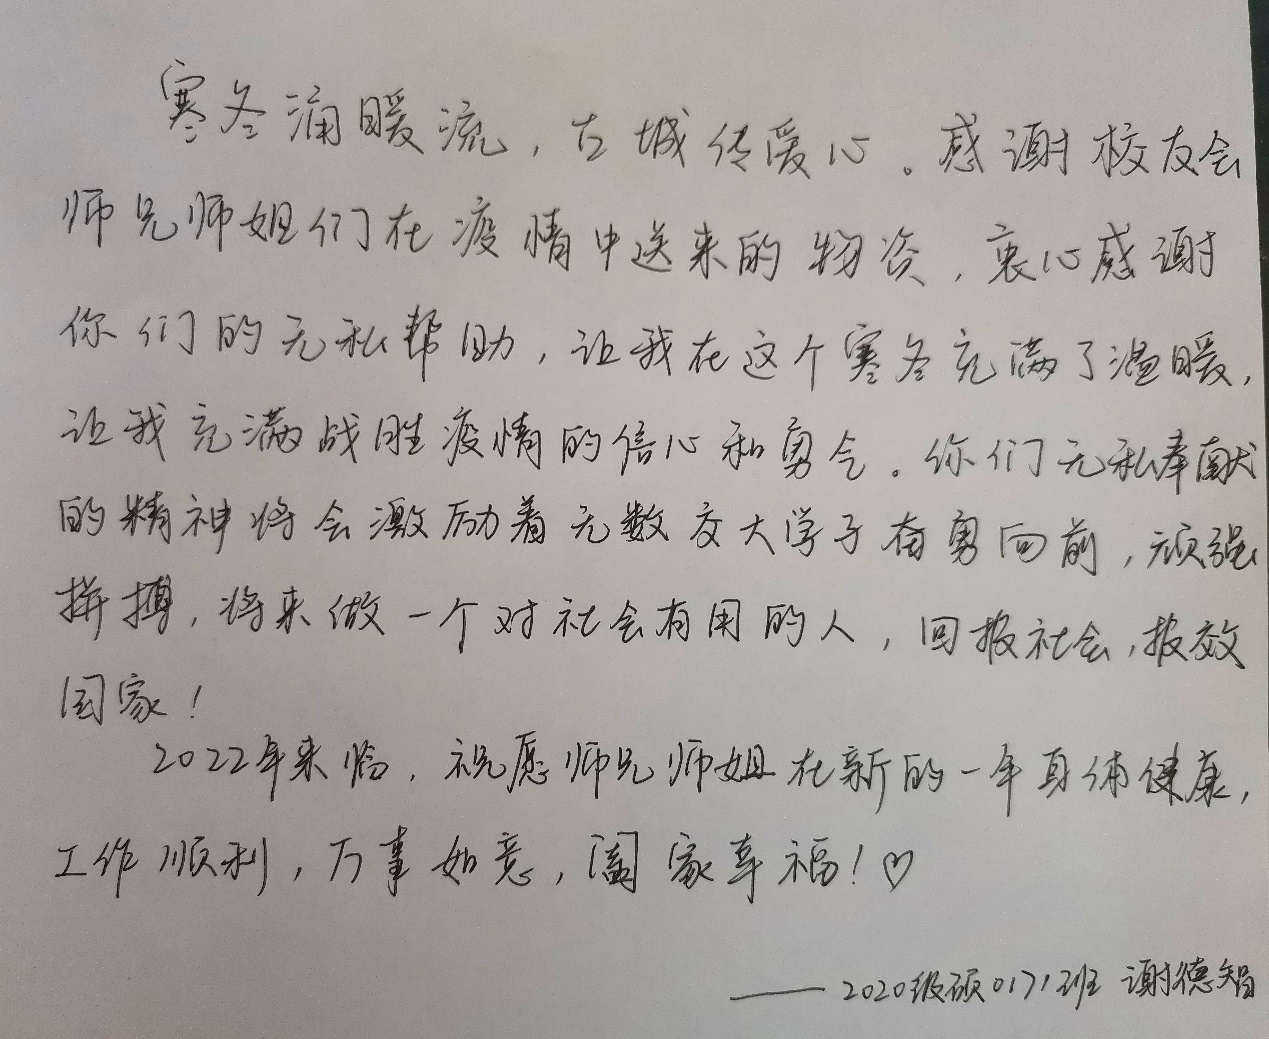 寒冬涌暖流，古城传爱心。感谢校友会
师兄师姐们在疫情中送来的物资，衷心感谢
你们的无私帮助，让我在这个寒冬充满了温暖，
让我充满战胜疫情的信心和勇气。你们无私奉献
的精神将会激励着无数交大学子奋勇向前，顽强
拼搏，将来做一个对社会有用的人，回报社会，报效
国家！
2022年来临，祝愿师兄师姐在新的一年身体健康，
工作顺利，万事如意，阖家幸福！♡
——2020级硕0171班 谢德智